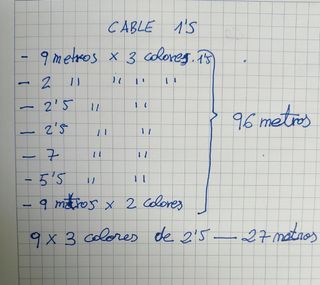 CABLE 1'5
- 9 metros x 3 colores. 1'5
- 2 " " " "
- 2'5 " "
- 2'5 " "
- 7 " "
- 5'5 " "
- 9 metros x 2 colores
96 metros
9 x 3 colores de 2'5 — 27 metros